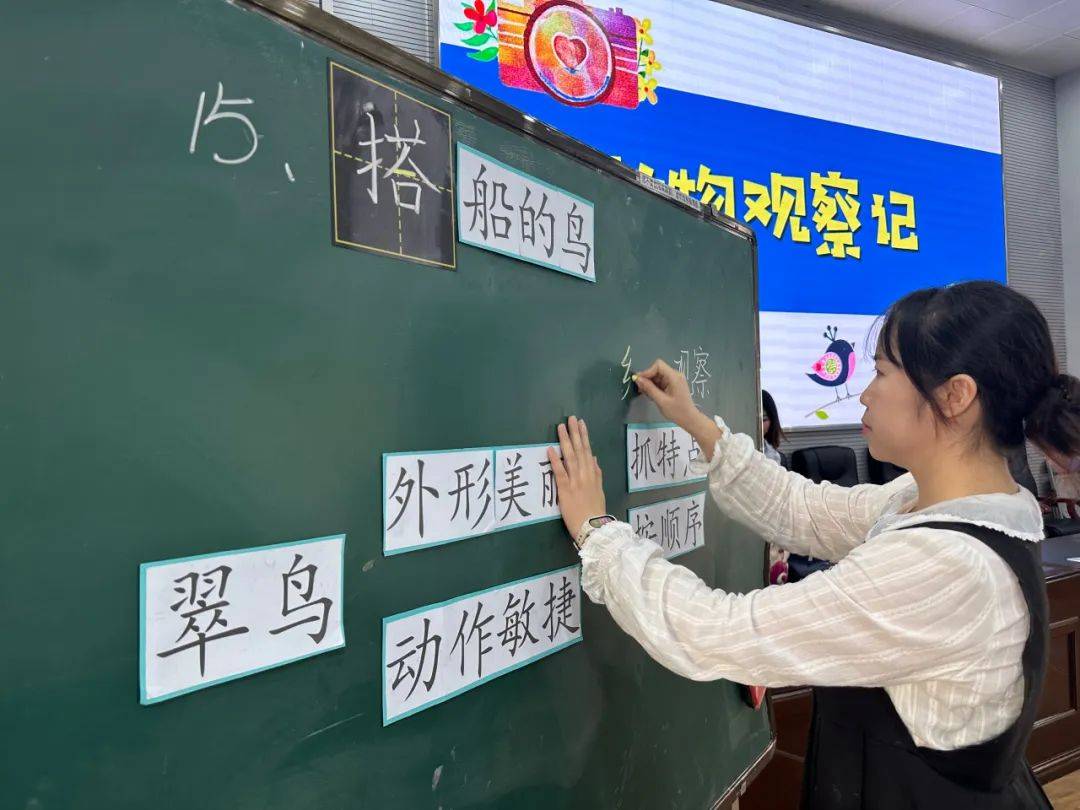 15、搭船的鸟
物观察记
观察
外形美丽
抓特点
按顺序
翠鸟
动作敏捷